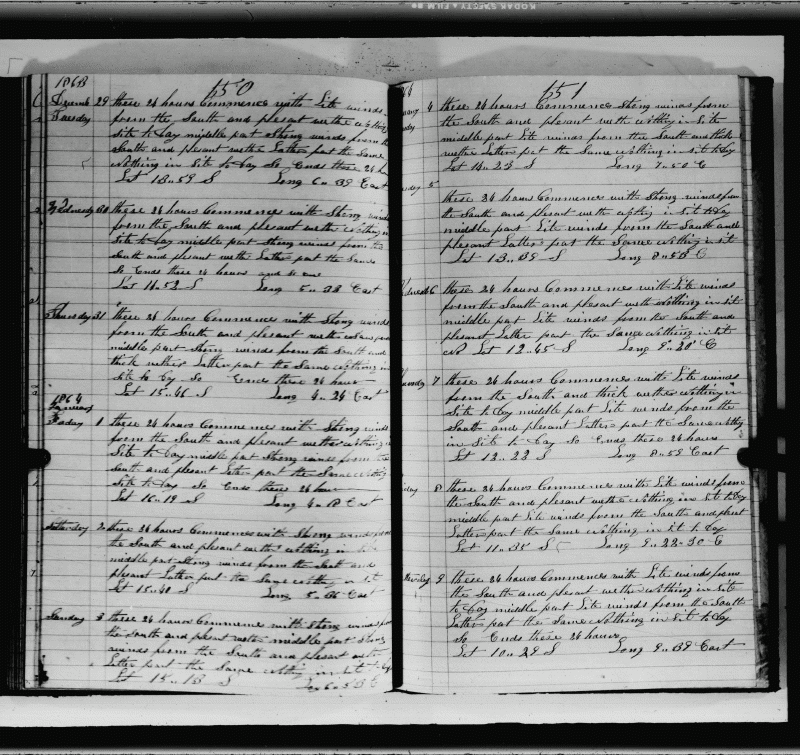 KODAK SAFETY FILM
1863
150
Decemb 29 these 24 hours Commence with Lite winds
Tuesday from the South and plesant wether nothing
in Site to Day middle part Strong winds from the
South and plesant wether Latter part the Same
Nothing in Site to Day So Ends these 24 h
Lat 13 " 59 S Long 6 " 39 East
Wednesday 30 these 24 hours Commence with Strong winds
from the South and plesant wether nothing in
Site to Day middle part Strong winds from the
South and plesant wether Latter part the Same
So Ends these 24 hours
Lat 14 " 52 S Long 5 " 33 East
Thursday 31 these 24 hours Commence with Strong winds
from the South and plesant wether
middle part Strong winds from the South and
thick wether Latter part the Same nothing in
Site to Day So Ends these 24 hours
Lat 15 " 46 S Long 4 " 24 East
1864
January
Friday 1 these 24 hours Commence with Strong winds
from the South and plesant wether nothing in
Site to Day middle part Strong winds from the
South and plesant Latter part the Same Nothing
Site to Day So Ends these 24 hours
Lat 16 " 19 S Long 4 " 18 East
Saturday 2 these 24 hours Commence with Strong winds from
the South and plesant wether nothing in Site
middle part Strong winds from the South and
plesant Latter part the Same nothing in Sit
Lat 15 " 40 S Long 5 " East
Sunday 3 these 24 hours Commence with Strong winds from
the South and plesant wether middle part Strong
winds from the South and plesant wether
Latter part the Same nothing in Sit to Day
Lat 15 " 13 S Long 6 " E
151
4 these 24 hours Commence Strong winds from
the South and plesant wether nothing in Site
middle part Lite winds from the South and thick
wether Latter part the Same Nothing in Sit to Day
Lat 14 " 23 S Long 7 " 50 E
5
these 24 hours Commence with Strong winds from
the South and plesant wether nothing in Sit to Day
middle part Lite winds from the South and
plesant Latter part the Same Nothing in Sit
Lat 13 " 39 S Long 8 " 53 E
Wednesd 6 these 24 hours Commence with Lite winds
from the South and plesant wether nothing in Sit
middle part Lite winds from the South and
plesant Latter part the Same Nothing in Sit
Lat 12 " 45 S Long 9 " 20 E
7 these 24 hours Commence with Lite winds
from the South and thick wether nothing in
Site to Day middle part Lite winds from the
South and plesant Latter part the Same nothing
in Site to Day So Ends these 24 hours
Lat 12 " 22 S Long 8 " 59 East
8 these 24 hours Commence with Lite winds from
the South and plesant wether Nothing in Sit to Day
middle part Lite winds from the South and plesant
Latter part the Same Nothing in Sit to Day
Lat 11 " 35 S Long 9 " 22 " 30 E
9 these 24 hours Commence with Lite winds from
the South and plesant wether Nothing in Sit
to Day middle part Lite winds from the South
Latter part the Same Nothing in Sit to Day
So Ends these 24 hours
Lat 10 " 29 S Long 9 " 39 East